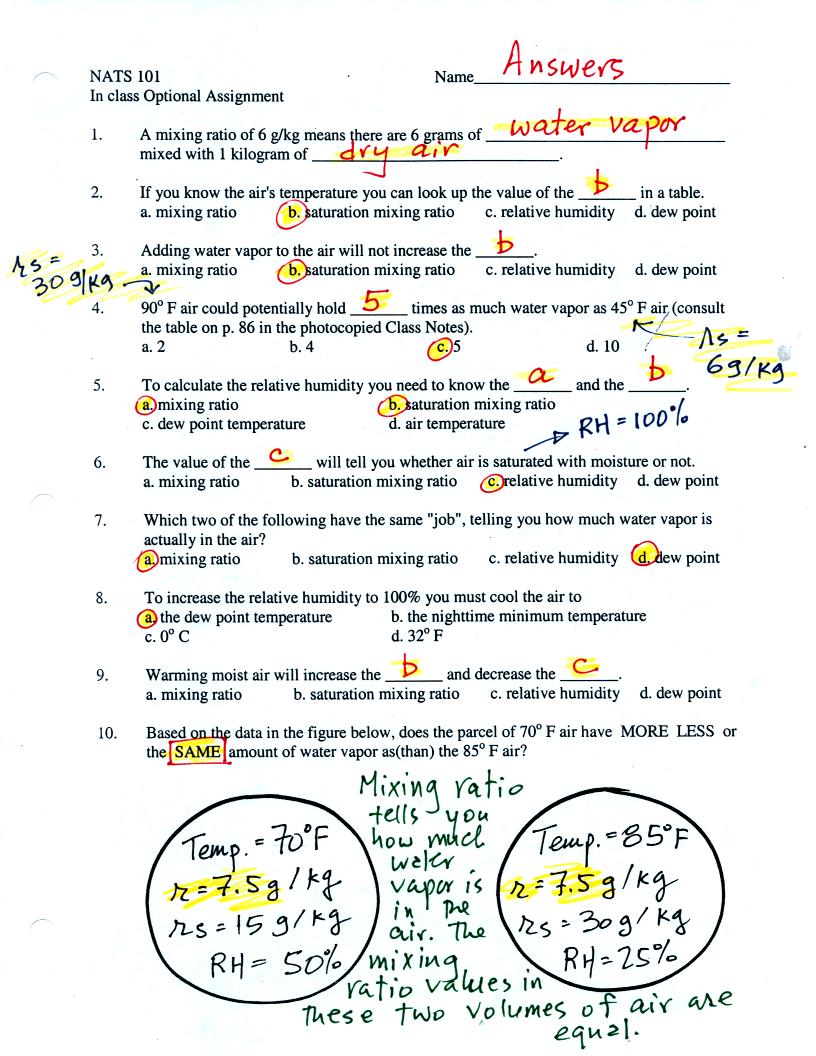 NATS 101 Name Answers
In class Optional Assignment
1. A mixing ratio of 6 g/kg means there are 6 grams of water vapor
mixed with 1 kilogram of dry air.
2. If you know the air's temperature you can look up the value of the b in a table.
a. mixing ratio b. saturation mixing ratio c. relative humidity d. dew point
3. Adding water vapor to the air will not increase the b.
a. mixing ratio b. saturation mixing ratio c. relative humidity d. dew point
rs =
30 g/kg
4. 90° F air could potentially hold 5 times as much water vapor as 45° F air (consult
the table on p. 86 in the photocopied Class Notes).
a. 2 b. 4 c. 5 d. 10
rs =
6 g/kg
5. To calculate the relative humidity you need to know the a and the b.
a. mixing ratio b. saturation mixing ratio
c. dew point temperature d. air temperature
RH = 100%
6. The value of the c will tell you whether air is saturated with moisture or not.
a. mixing ratio b. saturation mixing ratio c. relative humidity d. dew point
7. Which two of the following have the same "job", telling you how much water vapor is
actually in the air?
a. mixing ratio b. saturation mixing ratio c. relative humidity d. dew point
8. To increase the relative humidity to 100% you must cool the air to
a. the dew point temperature b. the nighttime minimum temperature
c. 0° C d. 32° F
9. Warming moist air will increase the b and decrease the c.
a. mixing ratio b. saturation mixing ratio c. relative humidity d. dew point
10. Based on the data in the figure below, does the parcel of 70° F air have MORE LESS or
the SAME amount of water vapor as(than) the 85° F air?
Temp. = 70°F
r = 7.5 g/kg
rs = 15 g/kg
RH = 50%
Mixing ratio
tells you
how much
water
vapor is
in the
air. The
mixing
ratio values in
these two volumes of air are
equal.
Temp. = 85°F
r = 7.5 g/kg
rs = 30 g/kg
RH = 25%